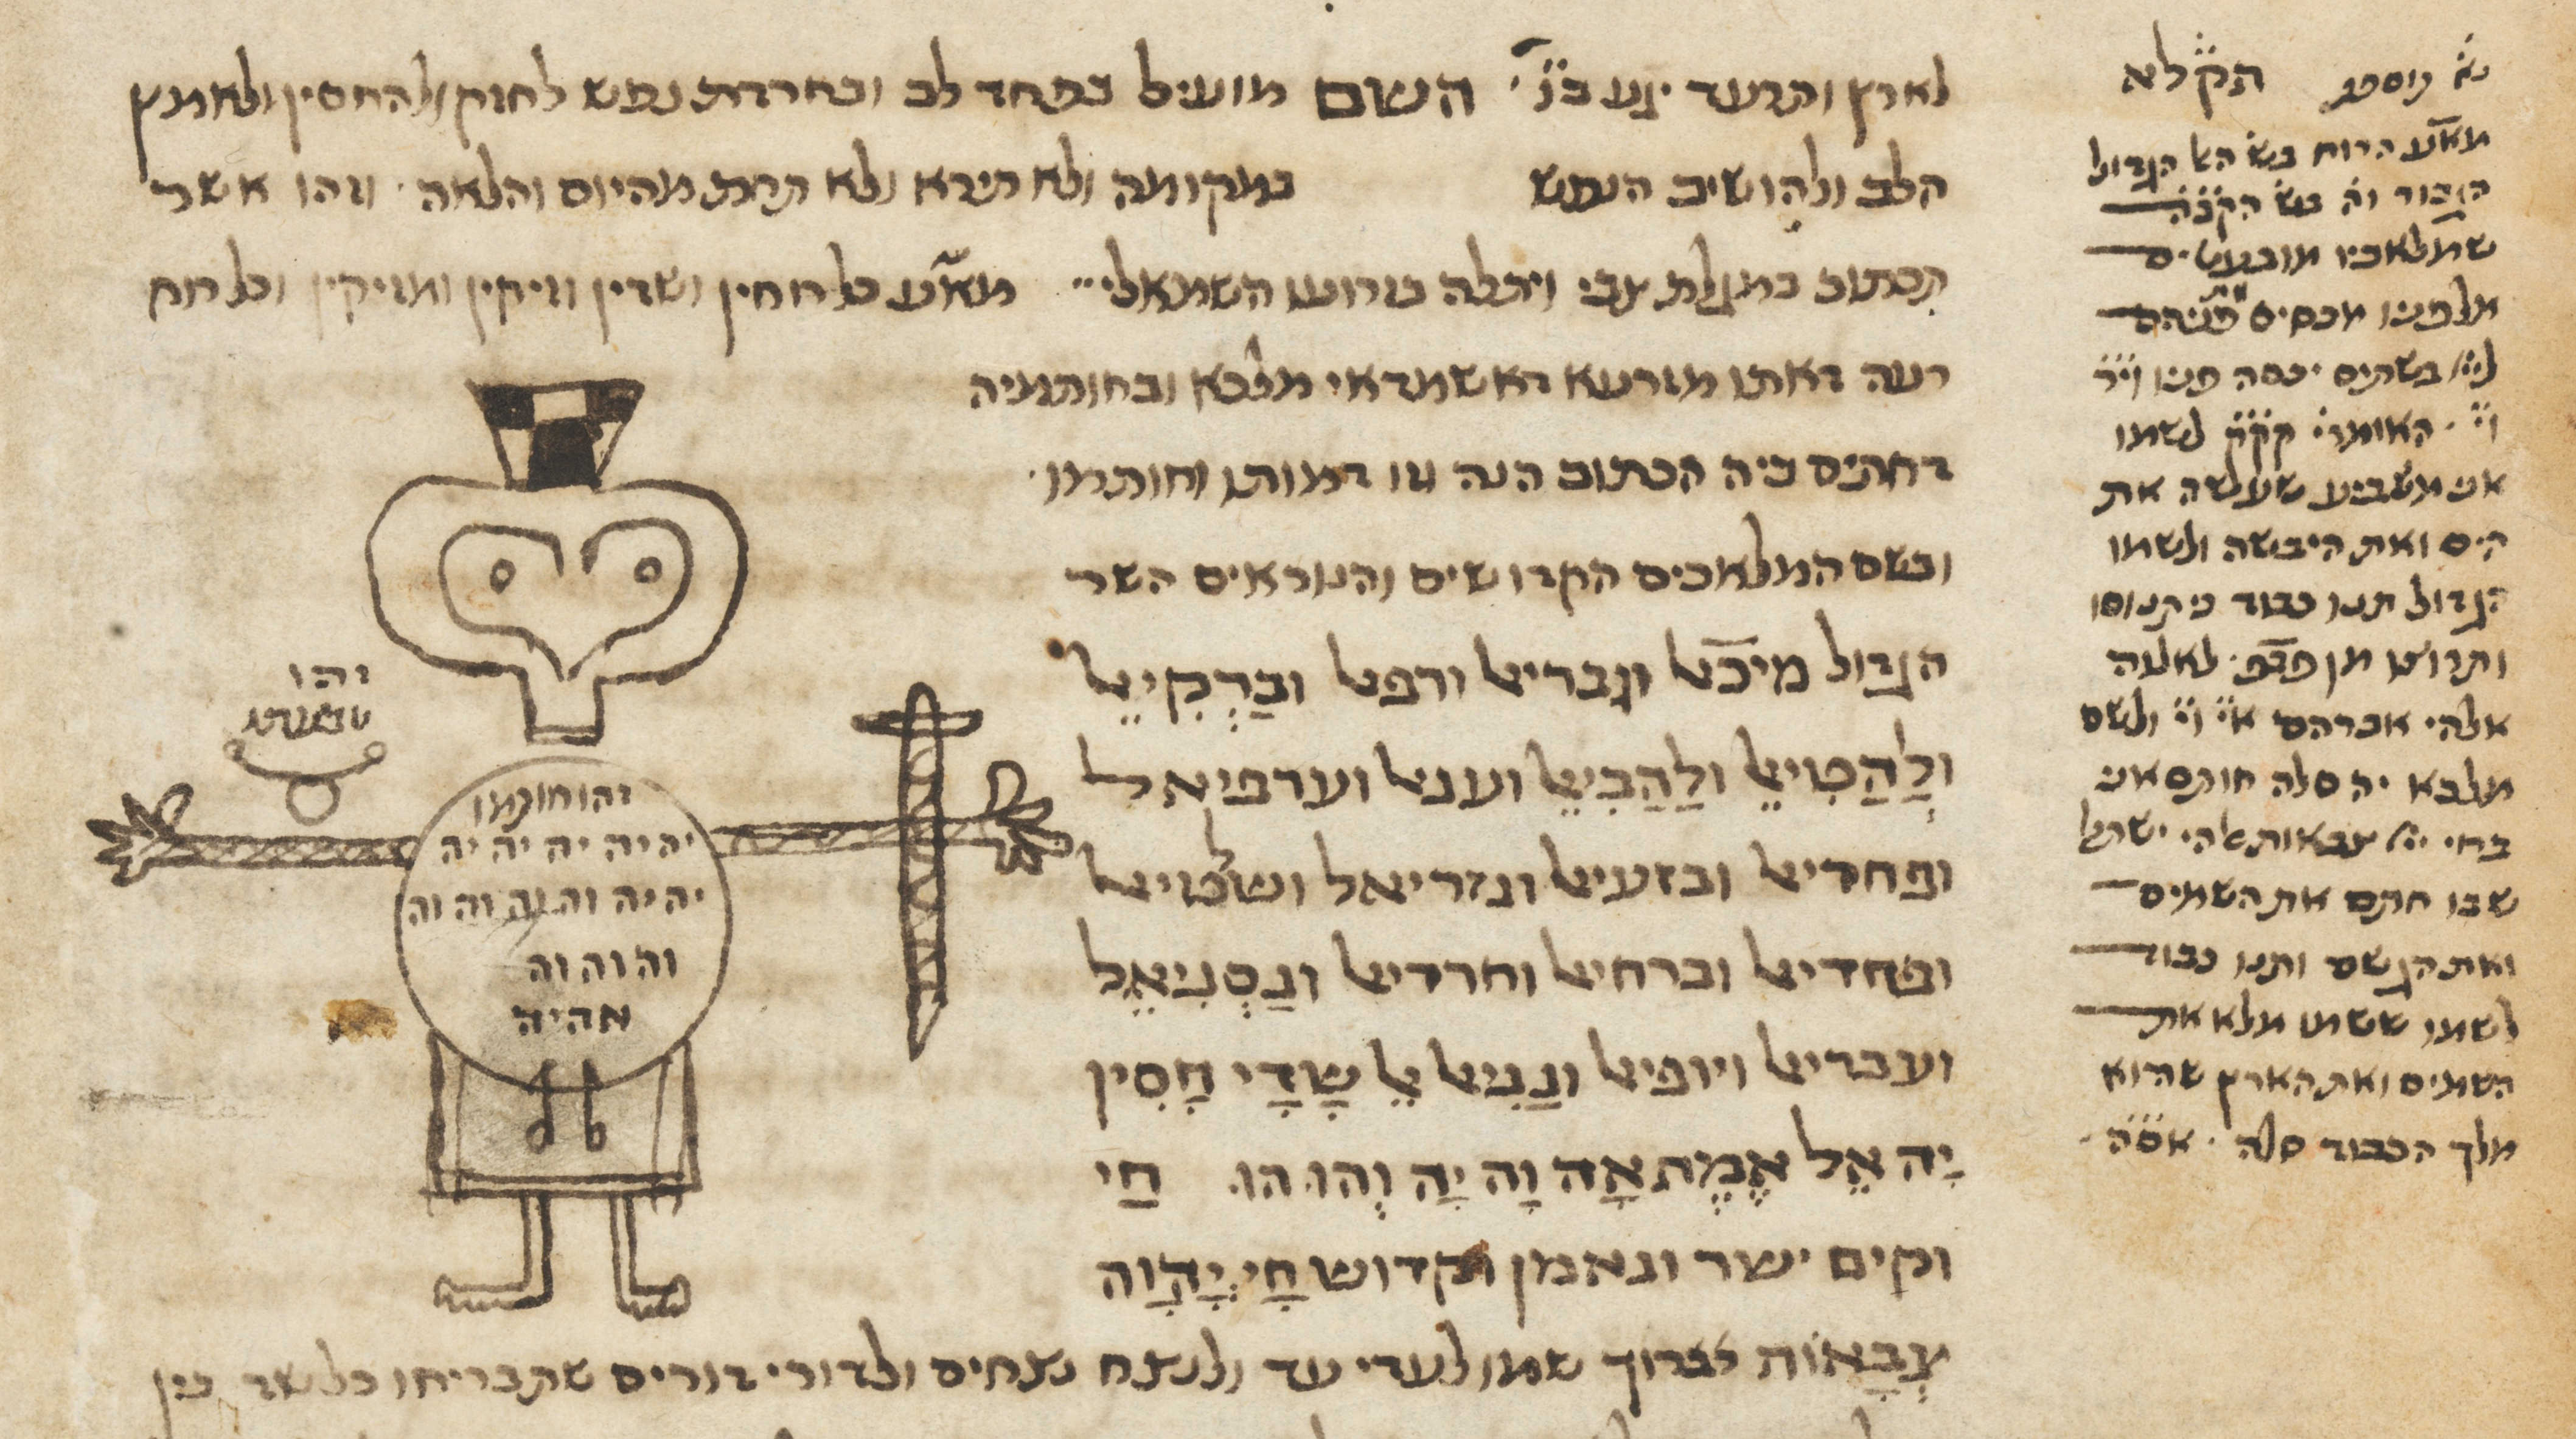 לארץ והרעד ינע בו׳ השם מועיל בפחד לב ובחרדת נפש לחזק ולהחסין ולאמץ
הלב ולהושיב הנפש במקומה ולא תירא ולא תחת מהיום והלאה וזהו אשר
תכתוב במגלת צבי ויתלה בזרועו השמאלי מאש״ע כל רוחין ושדין וזיקין ומזיקין וכל רוח
רעה דאתו מזרעא דאשמדאי מלכא ובחותמיה
דחתים ביה הכתוב הנה זו דמותו וחותמו
ובשם המלאכים הקדושים והנוראים השר
הגדול מיכאל וגבריאל ורפאל וּבַרְקִיאֵל
וְלַהַטִיאֵל וְלַהַבִיאֵל וענאל וערפיאל
ופחדיאל ובזעיאל וגזריאל ושלטויאל
ופחדיאל וברחיאל וחרדיאל ונַסְנִיאֵל
ועבריאל ויופיאל ונַגִיאל אֵל שָדָי חָסִין
יָה אֵל אֱמֶת אָה וָה יָה וְהוּ הוּ חַי
וקים ישר ונאמן וקדוש חַי יְהָוָה
צְבָאוֹת לברוך שמו לעדי עד ולנצח נצחים ולדורי דורים שתבריחו כל שד בין
זהו
זהו חותמו
יהיה יה יה יה
יהיה והוה וה וה
והוה וה
אהיה
נא נוסף הק״לא
מאש״ע הרוח בש׳ הש׳ הגדול
שמלאכיו מזבעזעים
מלפניו מכסים פניהם
בשתים יכסה פניו
האומרי׳ קק״ק לשמו
אני משביע שעשה את
הים ואת היבשה ולשמו
הגדול תנו כבוד כי תנוסו
ותזוזו מן לאלוה
אלהי אברהם א״י וי״י ולשם
מלכא יה סלה חותם אני
בחי י״י צבאות אלהי ישראל
שבו חתם את השמים
ואת הגשם ותנו כבוד
לשמו ששמו מלא את
השמים ואת הארץ שהוא
מלך הכבוד סלה אס״ה